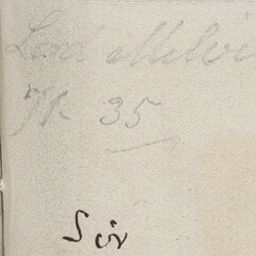 Lord Melvi
35
Sir